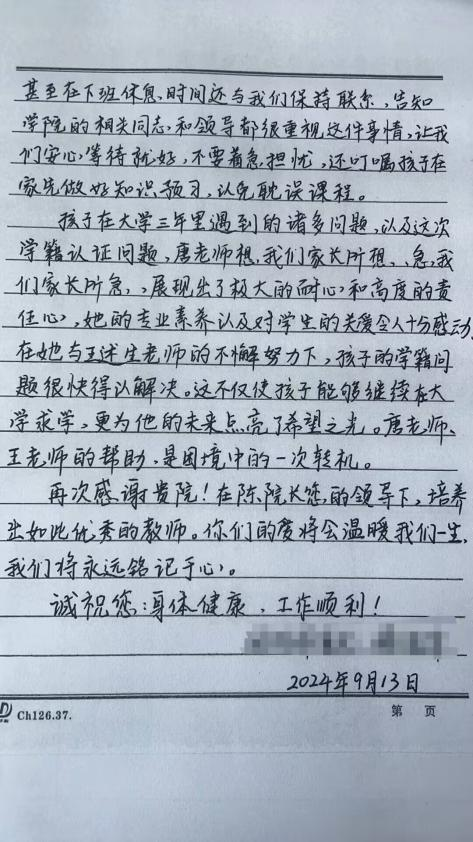 甚至在下班休息时间还与我们保持联系，告知
学院的相关同志和领导都很重视这件事情，让我
们安心等待就好，不要着急担忧，还叮嘱孩子在
家先做好知识预习，以免耽误课程。
孩子在大学三年里遇到的诸多问题，以及这次
学籍认证问题，唐老师想我们家长所想、急我
们家长所急，展现出了极大的耐心和高度的责
任心，她的专业素养以及对学生的关爱令人十分感动。
在她与王述生老师的不懈努力下，孩子的学籍问
题很快得以解决。这不仅使孩子能够继续在大
学求学，更为他的未来点亮了希望之光。唐老师、
王老师的帮助，是困境中的一次转机。
再次感谢贵院！在陈院长您的领导下，培养
出如此优秀的教师。你们的爱将会温暖我们一生，
我们将永远铭记于心。
诚祝您：身体健康，工作顺利！
2024年9月13日
Ch126.37.
第 页